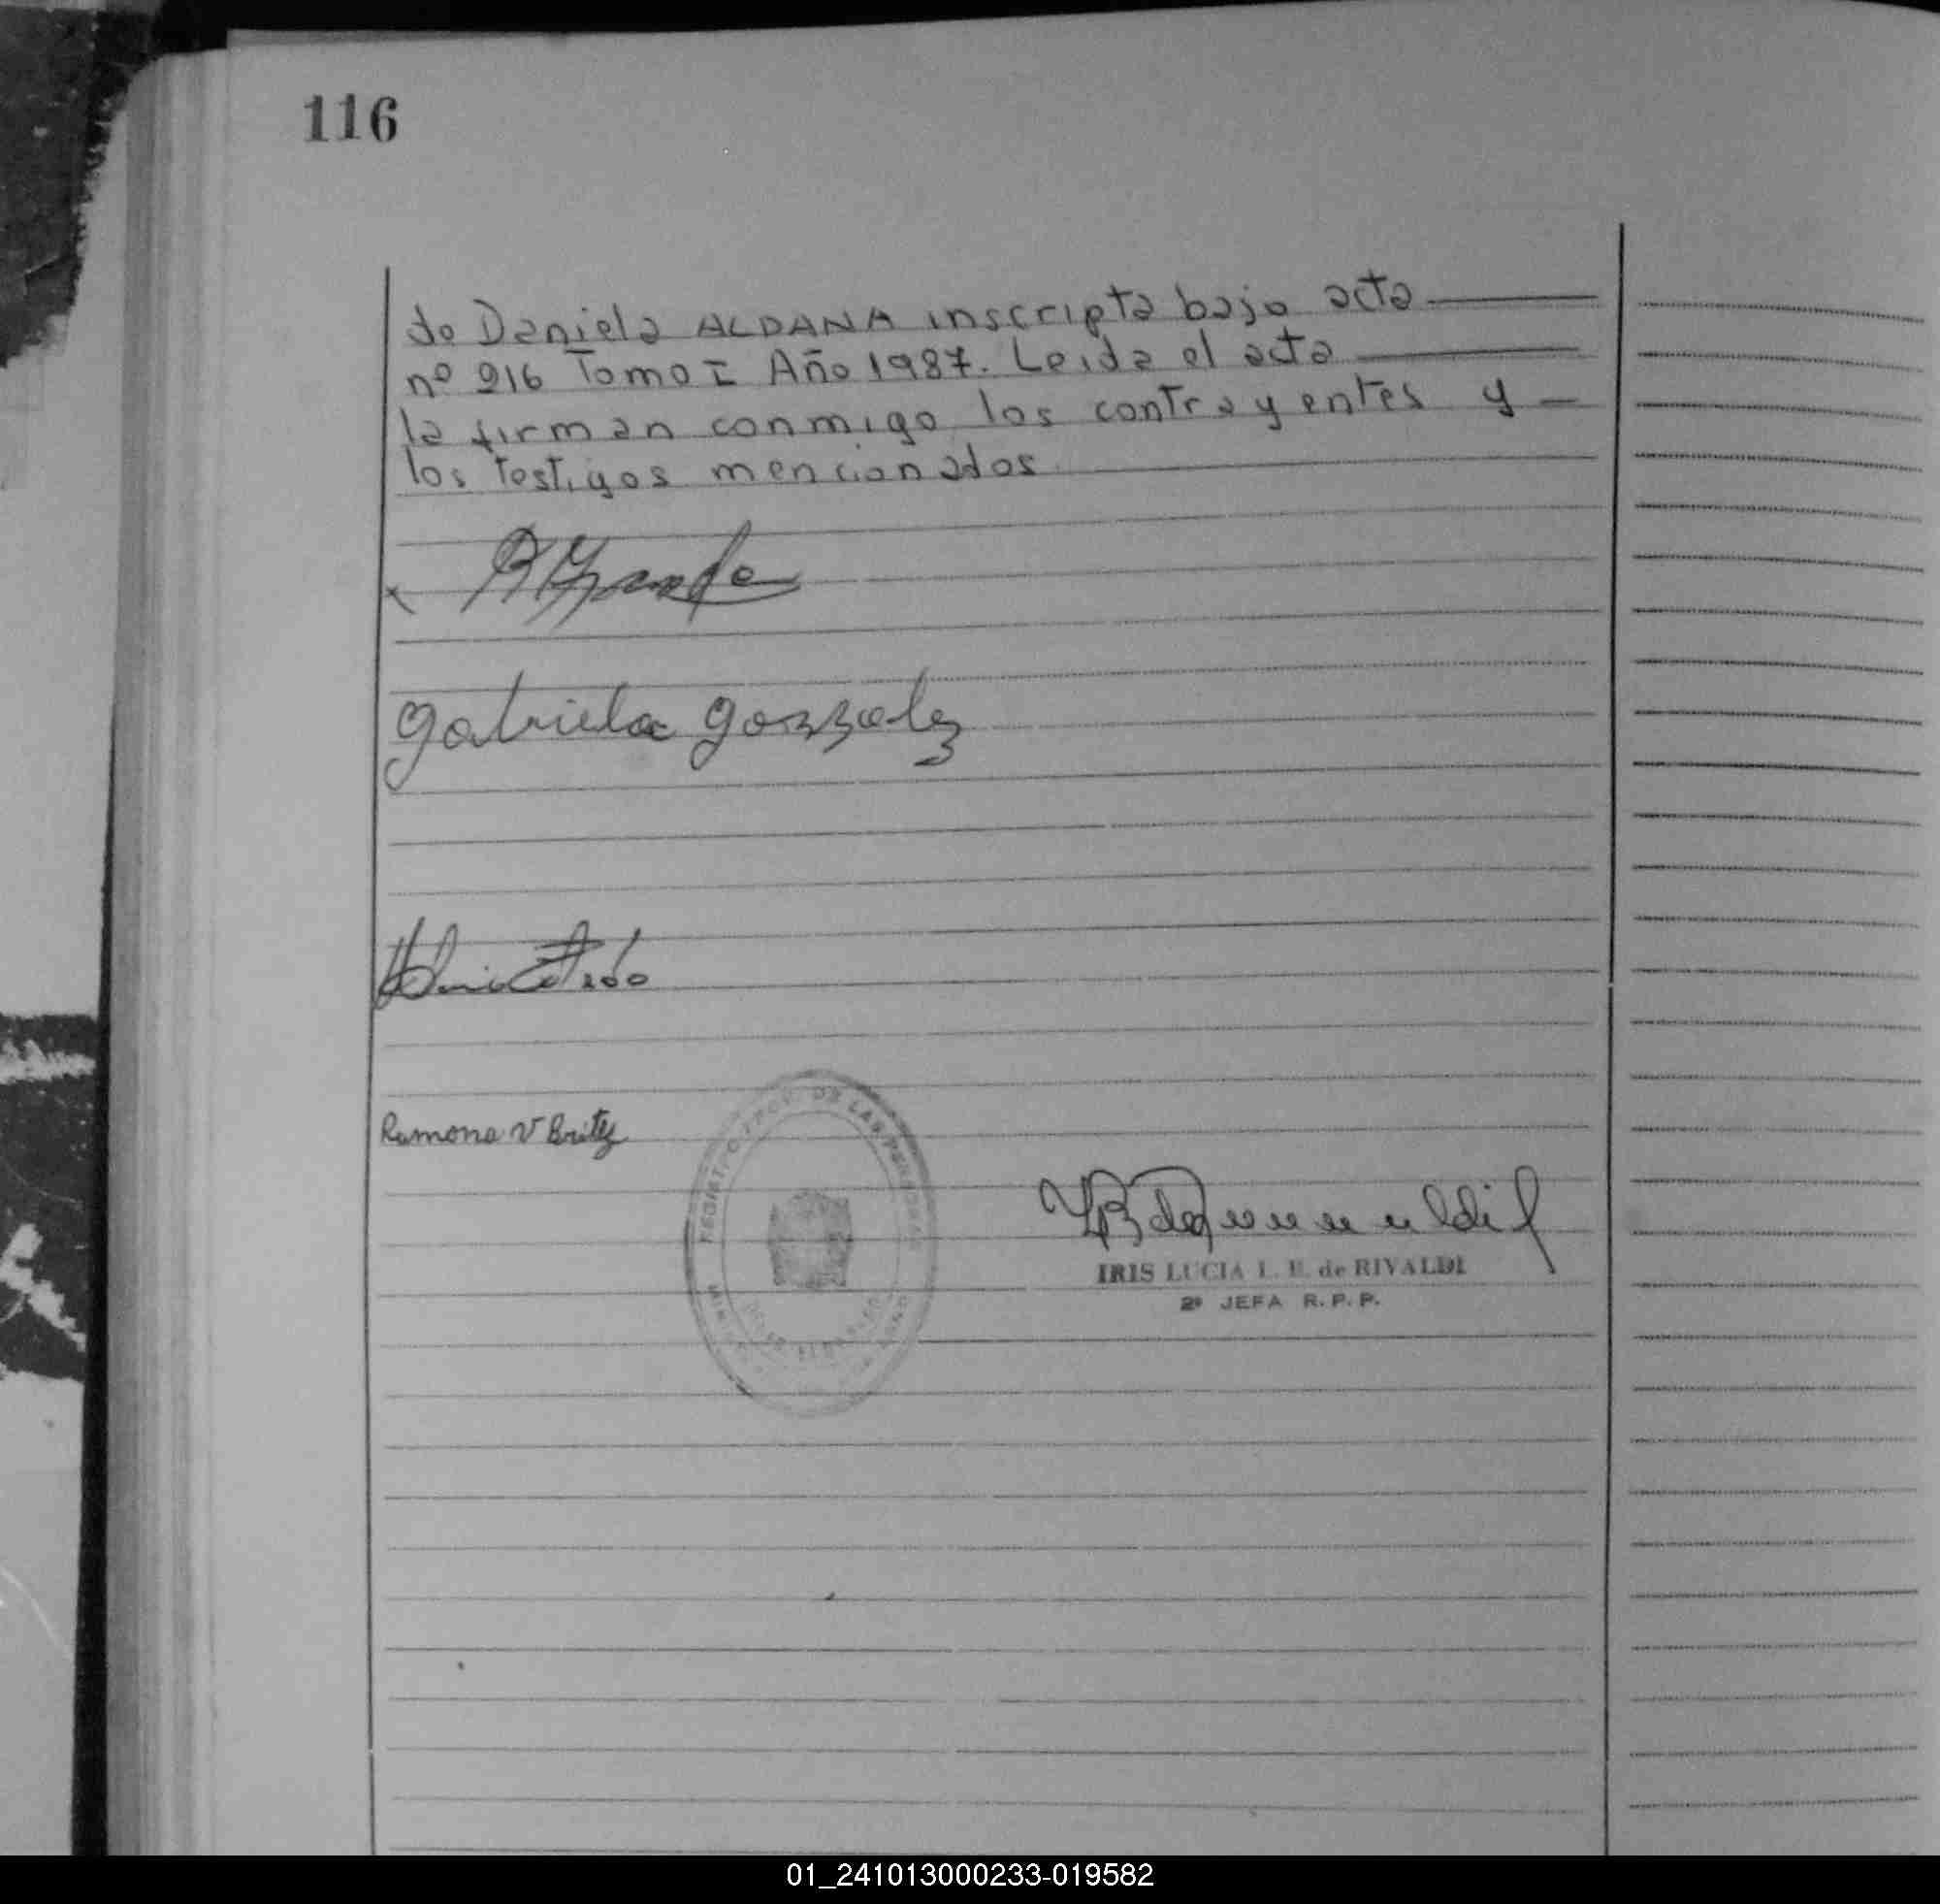 116
de Daniela ALDANA inscripta bajo acta
nº 916 Tomo I Año 1987. Leida el acta
la firman conmigo los contrayentes y
los testigos mencionados
gabriela gonzalez
Ramona V Britez
REGISTRO PROV. DE LAS PERSONAS
IRIS LUCIA L. E. de RIVALDI
2º JEFA R.P.P.
01_241013000233-019582